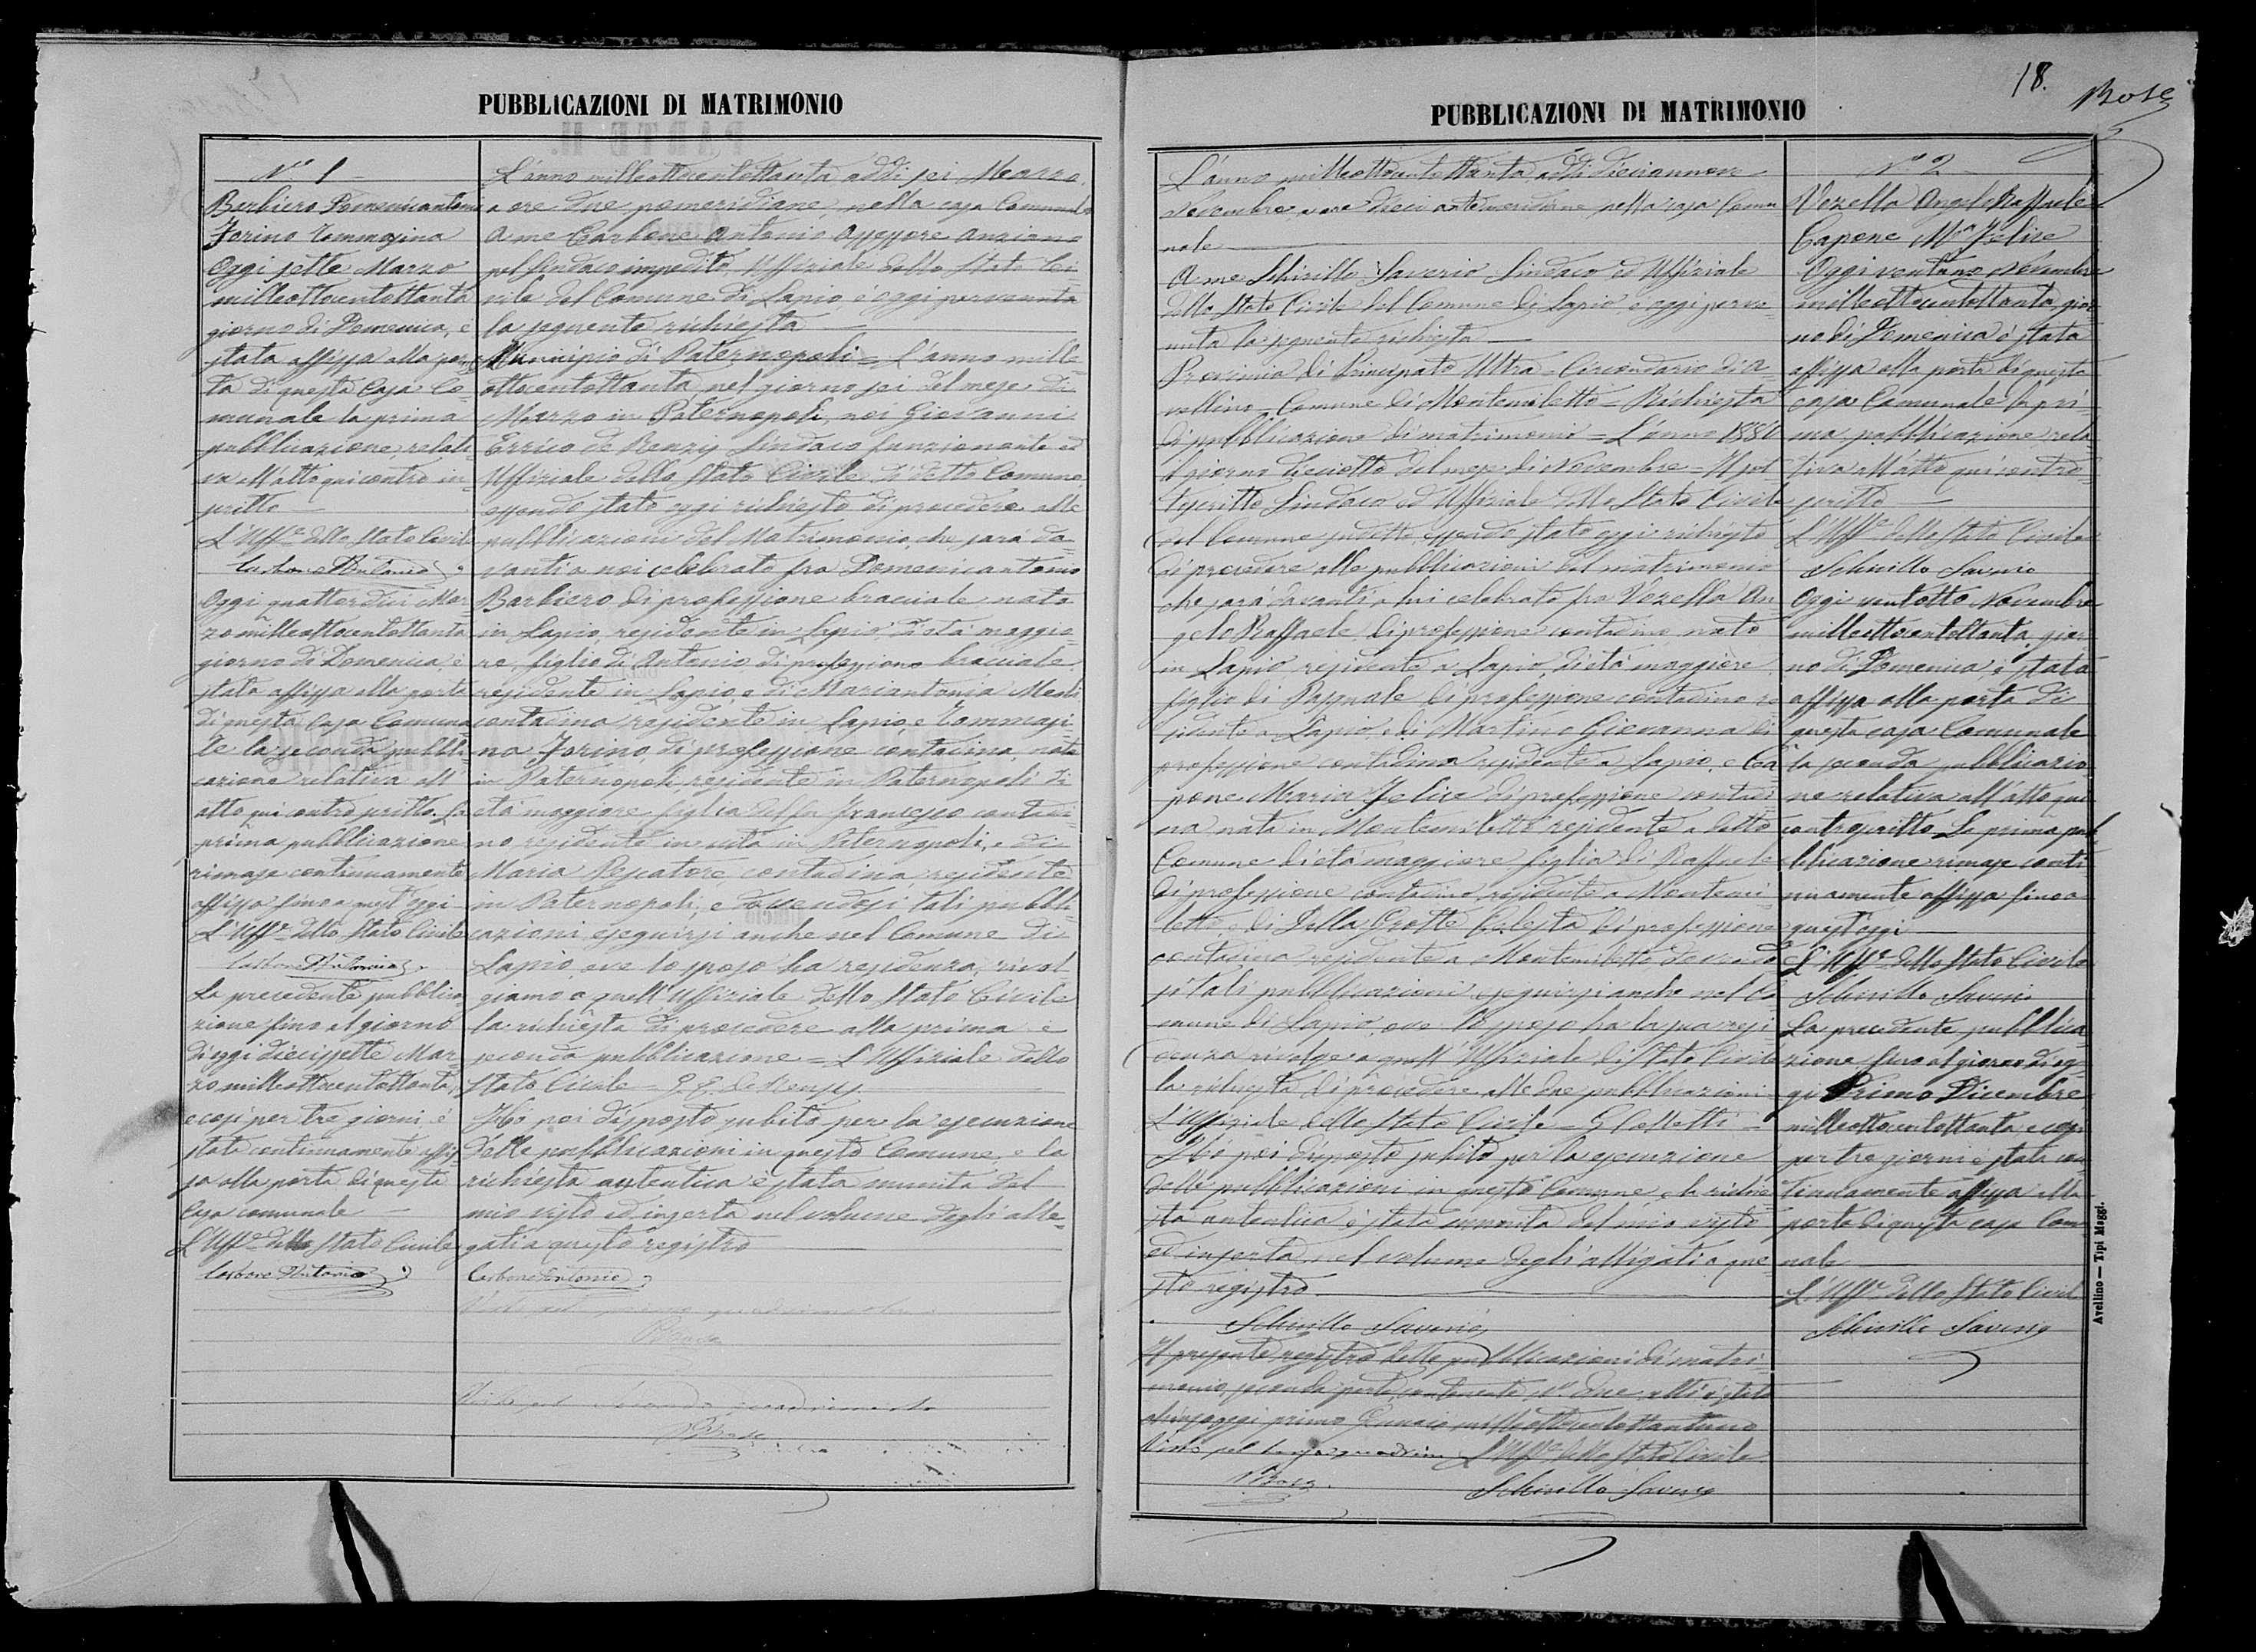 PUBBLICAZIONI DI MATRIMONIO
N° 1
Barbiero Domenicantonio
Forino Tommasina
Oggi sette Marzo
milleottocentottanta
giorno di Domenica, è
stata affissa alla por-
ta di questa Casa Co-
munale la prima
pubblicazione relati-
va all'atto qui contro in-
scritto
L'Uff.e dello Stato Civile
Carbone Antonio
Oggi quattordici Mar-
zo milleottocentottanta
giorno di Domenica, è
stata affissa alla porta
di questa Casa Comuna-
le la seconda pubbli-
cazione relativa all'
atto qui contro scritto. La
prima pubblicazione
rimase continuamente
affissa fino a quest'oggi
L'Uff.e dello Stato Civile
Carbone Antonio
La precedente pubblica-
zione fino al giorno
di oggi diecissette Mar-
zo milleottocentottanta,
e così per tre giorni, è
stata continuamente affis-
sa alla porta di questa
Casa comunale
L'Uff.e dello Stato Civile
Carbone Antonio
L'anno milleottocentottanta addì sei Marzo,
a ore due pomeridiane, nella casa Comunale
A me Carbone Antonio Assessore Anziano
pel Sindaco impedito, Uffiziale dello Stato Ci-
vile del Comune di Lapio, è oggi pervenuta
la seguente richiesta
Municipio di Paternopoli = L'anno mille
ottocentottanta, nel giorno sei del mese di
Marzo in Paternopoli, noi Giovanni
Errico de Renzis Sindaco funzionante ed
Uffiziale dello Stato Civile di detto Comune,
essendo stato oggi richiesto di procedere alle
pubblicazioni del Matrimonio, che sarà da-
vanti a noi celebrato fra Domenicantonio
Barbiero di professione bracciale nato
in Lapio, residente in Lapio, di età maggio-
re, figlio di Antonio di professione bracciale,
residente in Lapio, e di Mariantonia
contadina residente in Lapio, e Tommasi-
na Forino, di professione contadina, nata
in Paternopoli, residente in Paternopoli di
età maggiore figlia del fu Francesco contadi-
no residente in vita in Paternopoli, e di
Maria Pescatore, contadina, residente
in Paternopoli, e dovendosi tali pubbli-
cazioni eseguirsi anche nel Comune di
Lapio, ove lo sposo ha residenza, rivol-
giamo a quell'Uffiziale dello Stato Civile
la richiesta di procedere alla prima e
seconda pubblicazione = L'Uffiziale dello
Stato Civile = G. E. de Renzis
Ho poi disposto subito per la esecuzione
delle pubblicazioni in questo Comune, e la
richiesta autentica è stata munita del
mio visto ed inserta nel volume degli alle-
gati a questo registro
Carbone Antonio
Visto pel primo quadrimestre
Bose
Visto pel secondo quadrimestre
Bose
18.
Bose
PUBBLICAZIONI DI MATRIMONIO
L'anno milleottocentottanta, addì diciannove
Novembre, a ore dieci antimeridiane nella casa Comu-
nale
A me Schirillo Saverio Sindaco ed Uffiziale
dello Stato Civile del Comune di Lapio, è oggi perve-
nuta la seguente richiesta
Provincia di Principato Ultra = Circondario di A-
vellino = Comune di Montemiletto = Richiesta
di pubblicazione di matrimonio = L'anno 1880
il giorno diciotto del mese di Novembre = Il sot-
toscritto Sindaco ed Uffiziale dello Stato Civile
del Comune suddetto, essendo stato oggi richiesto
di procedere alle pubblicazioni del matrimonio
che sarà davanti a lui celebrato fra Vozella An-
gelo Raffaele, di professione contadino nato
in Lapio, residente a Lapio, di età maggiore,
figlio di Pasquale di professione contadino re-
sidente a Lapio e di Martino Giovanna di
professione contadina residente a Lapio, e Ca-
pone Maria Felice di professione contadi-
na nata in Montemiletto residente a detto
Comune di età maggiore figlia di Raffaele
di professione contadino residente a Montemi-
letto e di Della Grotte Celesta di professione
contadina residente a Montemiletto dovendo
si tali pubblicazioni eseguirsi anche nel Co-
mune di Lapio, ove lo sposo ha la sua resi-
denza rivolge a quell'Uffiziale di Stato Civile
la richiesta di procedere alle due pubblicazioni
L'Uffiziale dello Stato Civile = G Colletti =
Ho poi disposto subito per la esecuzione
delle pubblicazioni in questo Comune e la richie-
sta autentica è stata munita del mio visto
ed inserta nel volume degli alligati a que-
sto registro.
Schirillo Saverio
Il presente registro delle pubblicazioni di matri-
monio, seconda parte, contenente N° due atti è stato
chiuso oggi primo Gennaio milleottocentottantuno
Visto pel terzo quadrim. L'Uff.e dello Stato Civile
Bose
Schirillo Saverio
N° 2
Vozella Angelo Raffaele
Capone M.a Felice
Oggi ventuno Novembre
milleottocentottanta, gior-
no di Domenica è stata
affissa alla porta di questa
casa Comunale la pri-
ma pubblicazione rela-
tiva all'atto qui contro
scritto
L'Uff.e dello Stato Civile
Schirillo Saverio
Oggi ventotto Novembre
milleottocentottanta, gior-
no di Domenica, è stata
affissa alla porta di
questa casa Comunale
la seconda pubblicazio-
ne relativa all'atto qui
controscritto. La prima pub-
blicazione rimase conti-
nuamente affissa fino a
quest'oggi
L'Uff.e dello Stato Civile
Schirillo Saverio
La precedente pubblica-
zione fino al giorno di og-
gi Primo Dicembre
milleottocentottanta e così
per tre giorni è stata con-
tinuamente affissa alla
porta di questa casa Comu-
nale
L'Uff.e dello Stato Civile
Schirillo Saverio
Avellino — Tipi Maggi.